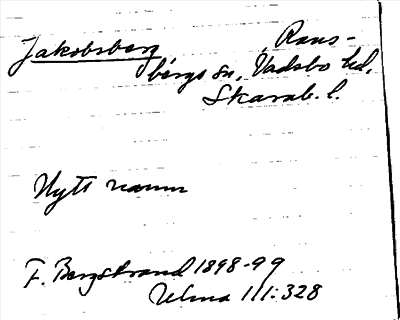 Jakobsberg, Rans-
bergs sn, Vadsbo hd,
Skarab. l.
Nytt namn
F. Bergstrand 1898-99
Ulma 111:328